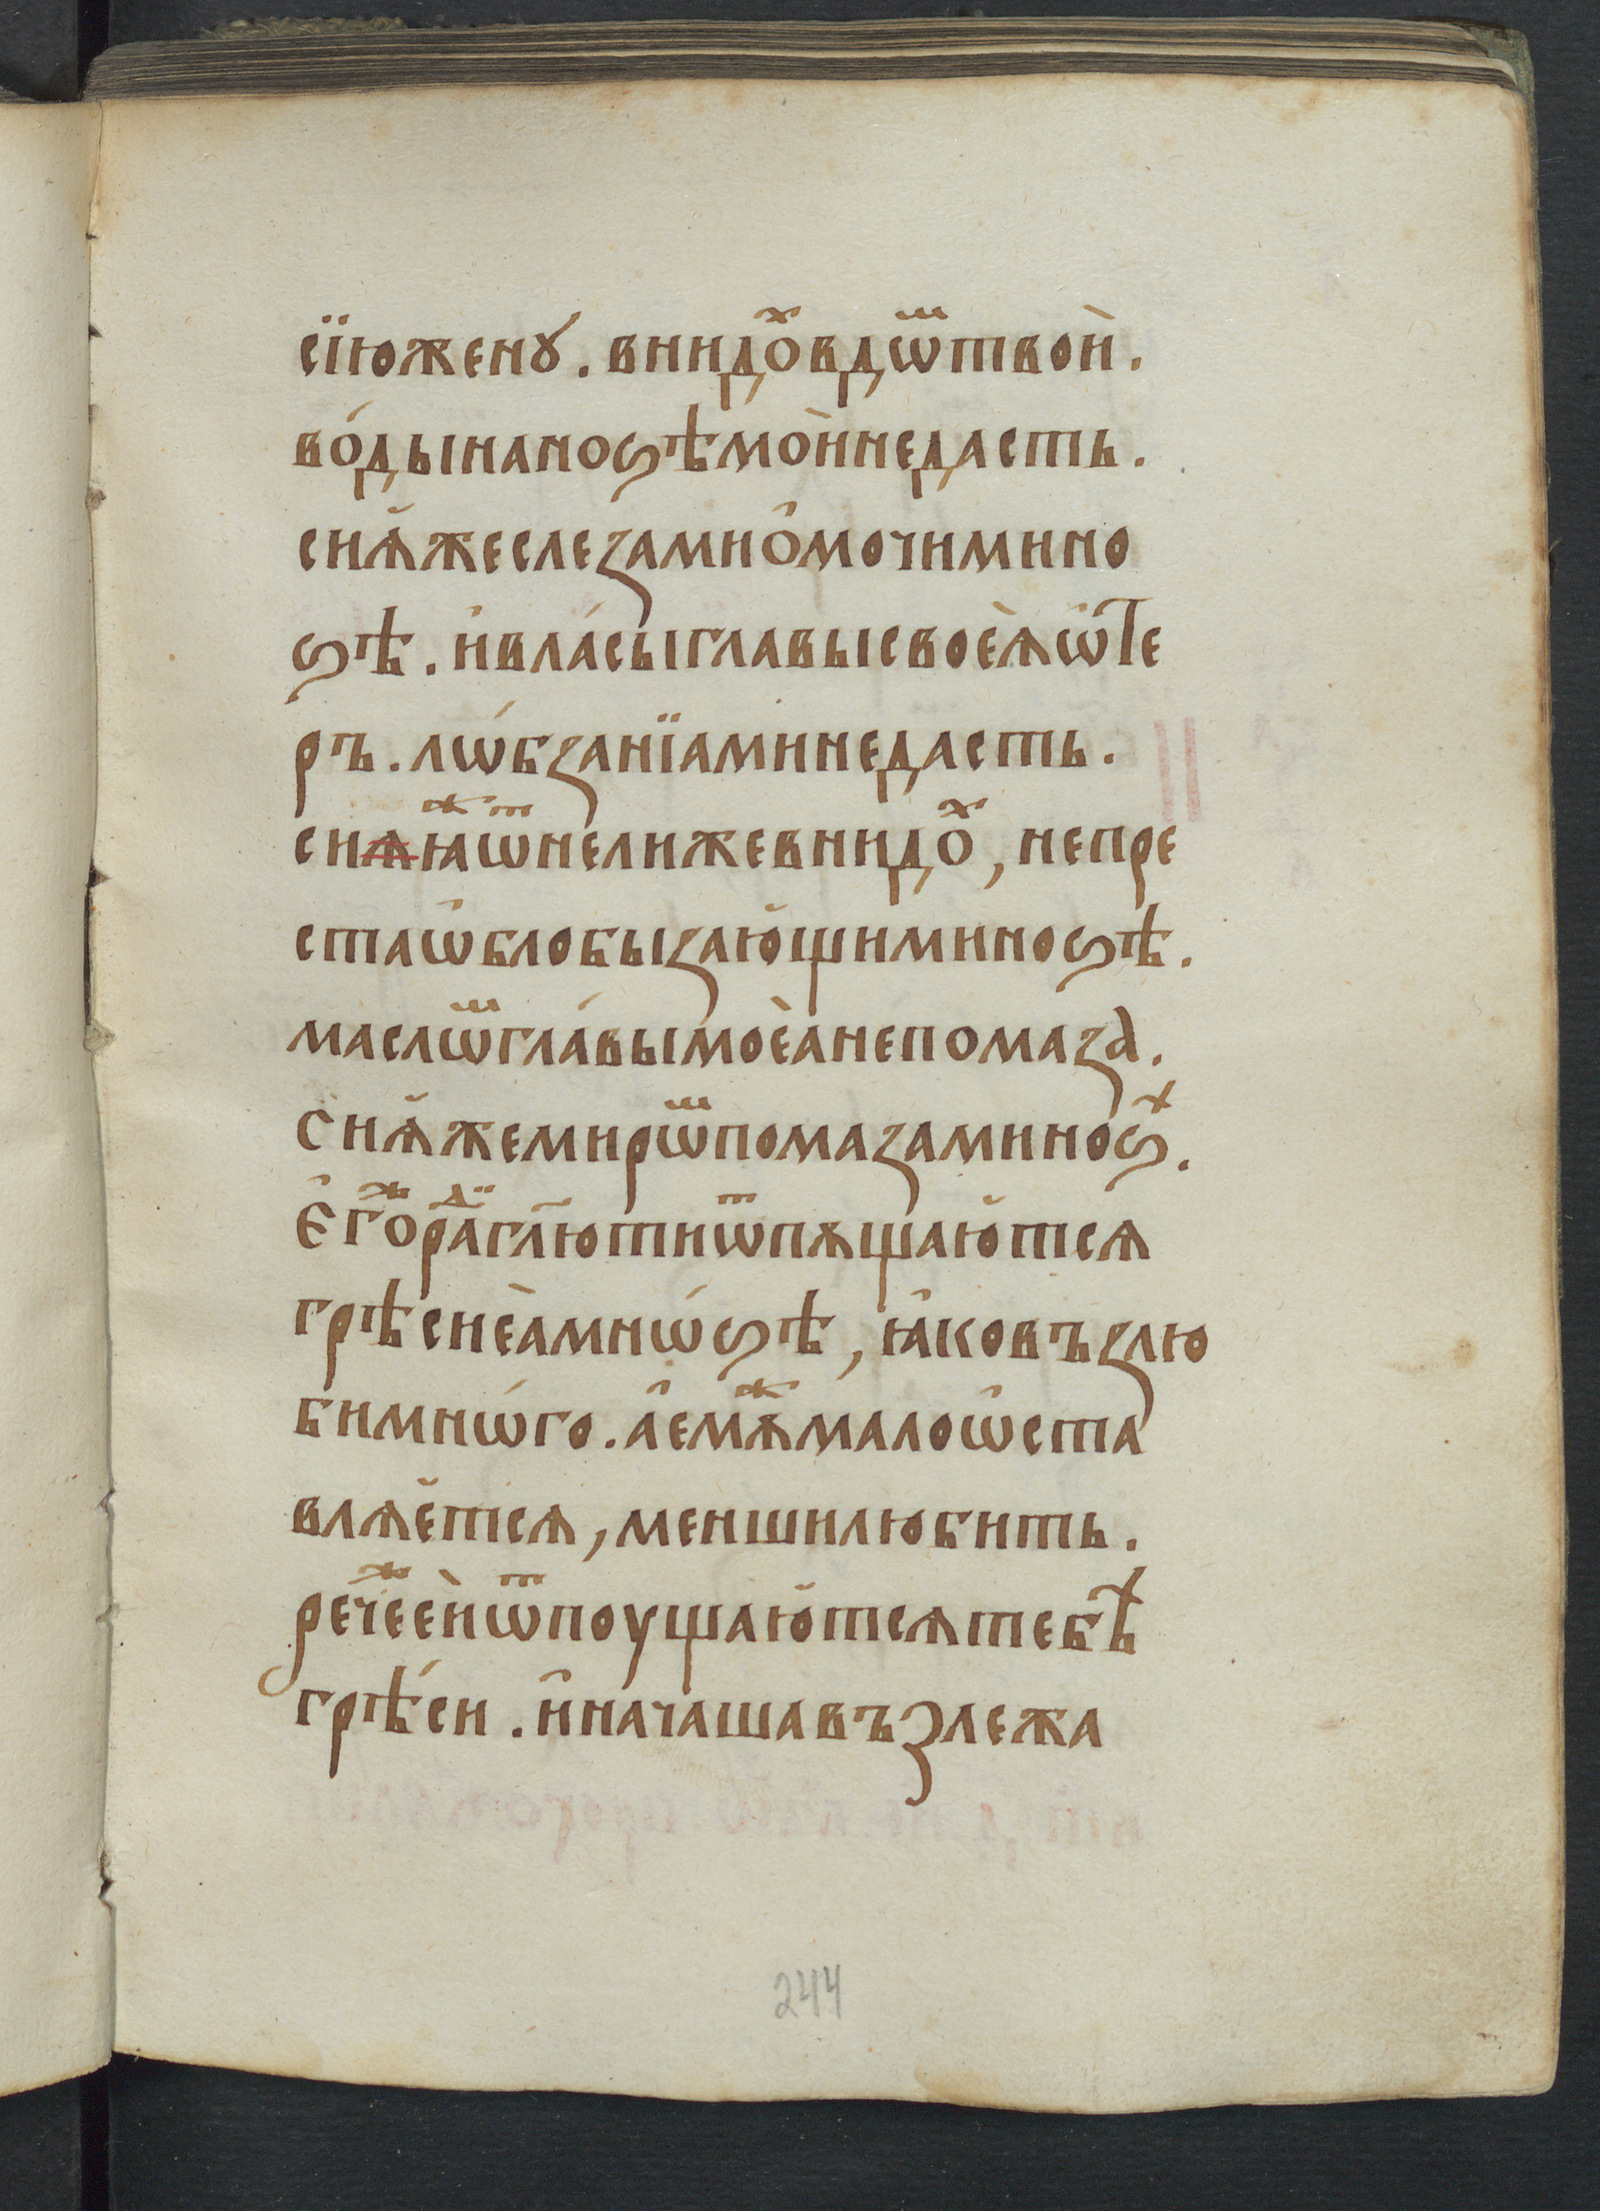 сїюженꙋ . внидоⷯвдѡⷨтвои̇ .
во́дынаноѕѣмои̇недасть .
сиѧ̑жеслезамиѻ҆мочимино
ѕѣ . и҆вла́сыглавысвоеѧ̀ѡ҆те
ръ . лѡ́бзанїаминедасть .
сиꙗⷤѿнелижевнидоⷯ , непре
стаѡ҆блобызаю̑щиминоѕѣ .
маслѡⷨгла́вымоеа̀непомаза .
сиѧ̑жемирѡⷨпомазаминоѕⷯ .
є҆гоⷤраⷣглютиѿпѫщаю̑тсѧ
грѣсиеа̀мнѡ́ѕѣ , ꙗ҆ковъзлю
бимнѡ́го . а҆емѫⷤмалоѡ҆ста
влѧ̑етсѧ , меншилюбить .
речⷤееи̇ѿпоущаю̑тсѧтебѣ
грѣ́си . и҆начашавъзлежа
244